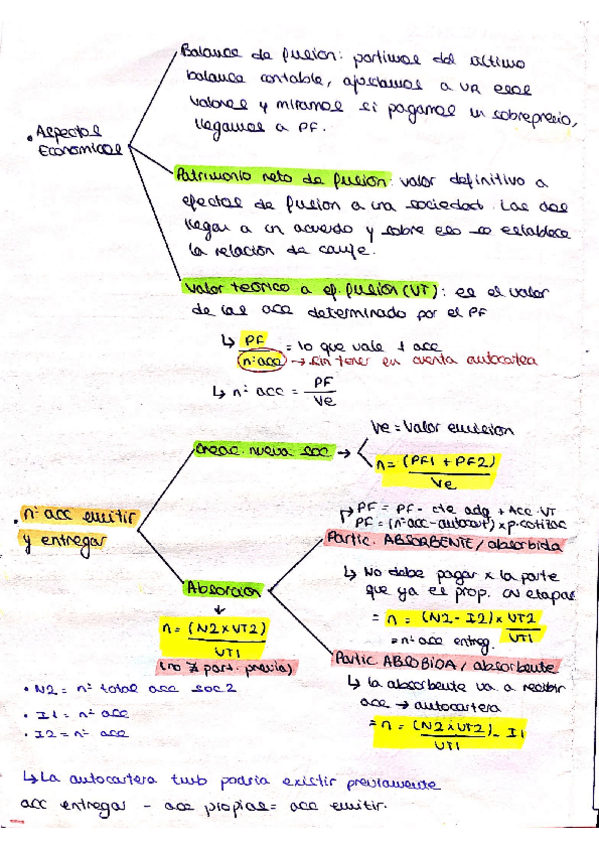 Balance de fusion: partimos del último
balance contable, ajustamos a VR esos
valores y miramos si pagamos un sobreprecio,
llegamos a PF.
• Aspectos
Economicos
Patrimonio neto de fusion: valor definitivo a
efectos de fusion a una sociedad. Las dos
llegan a un acuerdo y sobre eso se establece
la relación de canje.
Valor teórico a ef. fusion (VT): es el valor
de las acc determinado por el PF
↳ PF / nº acc = lo que vale 1 acc
→ sin tener en cuenta autocartea
↳ nº acc = PF / Ve
Ve = Valor emision
Creac. nueva soc →
n = (PF1 + PF2) / Ve
• nº acc emitir
y entregar
PF = PF - cte adq + Acc · VT
PF = (nº acc - autocart) x p. cotizac
Partic. ABSORBENTE / absorbida
↳ No debe pagar x la parte
que ya es prop. en etapas
= n = (N2 - I2) x VT2 / VT1
= nº acc entreg.
Absorcion
↓
n = (N2 x VT2) / VT1
(no ∄ part. previa)
Partic ABSOBIDA / absorbente
↳ la absorbente va a recibir
acc → autocartera
= n = (N2 x VT2) / VT1 - I1
• N2 = nº total acc soc 2
• I1 = nº acc
• I2 = nº acc
↳ La autocartera tmb podria existir previamente
acc entregar - acc propias = acc emitir.